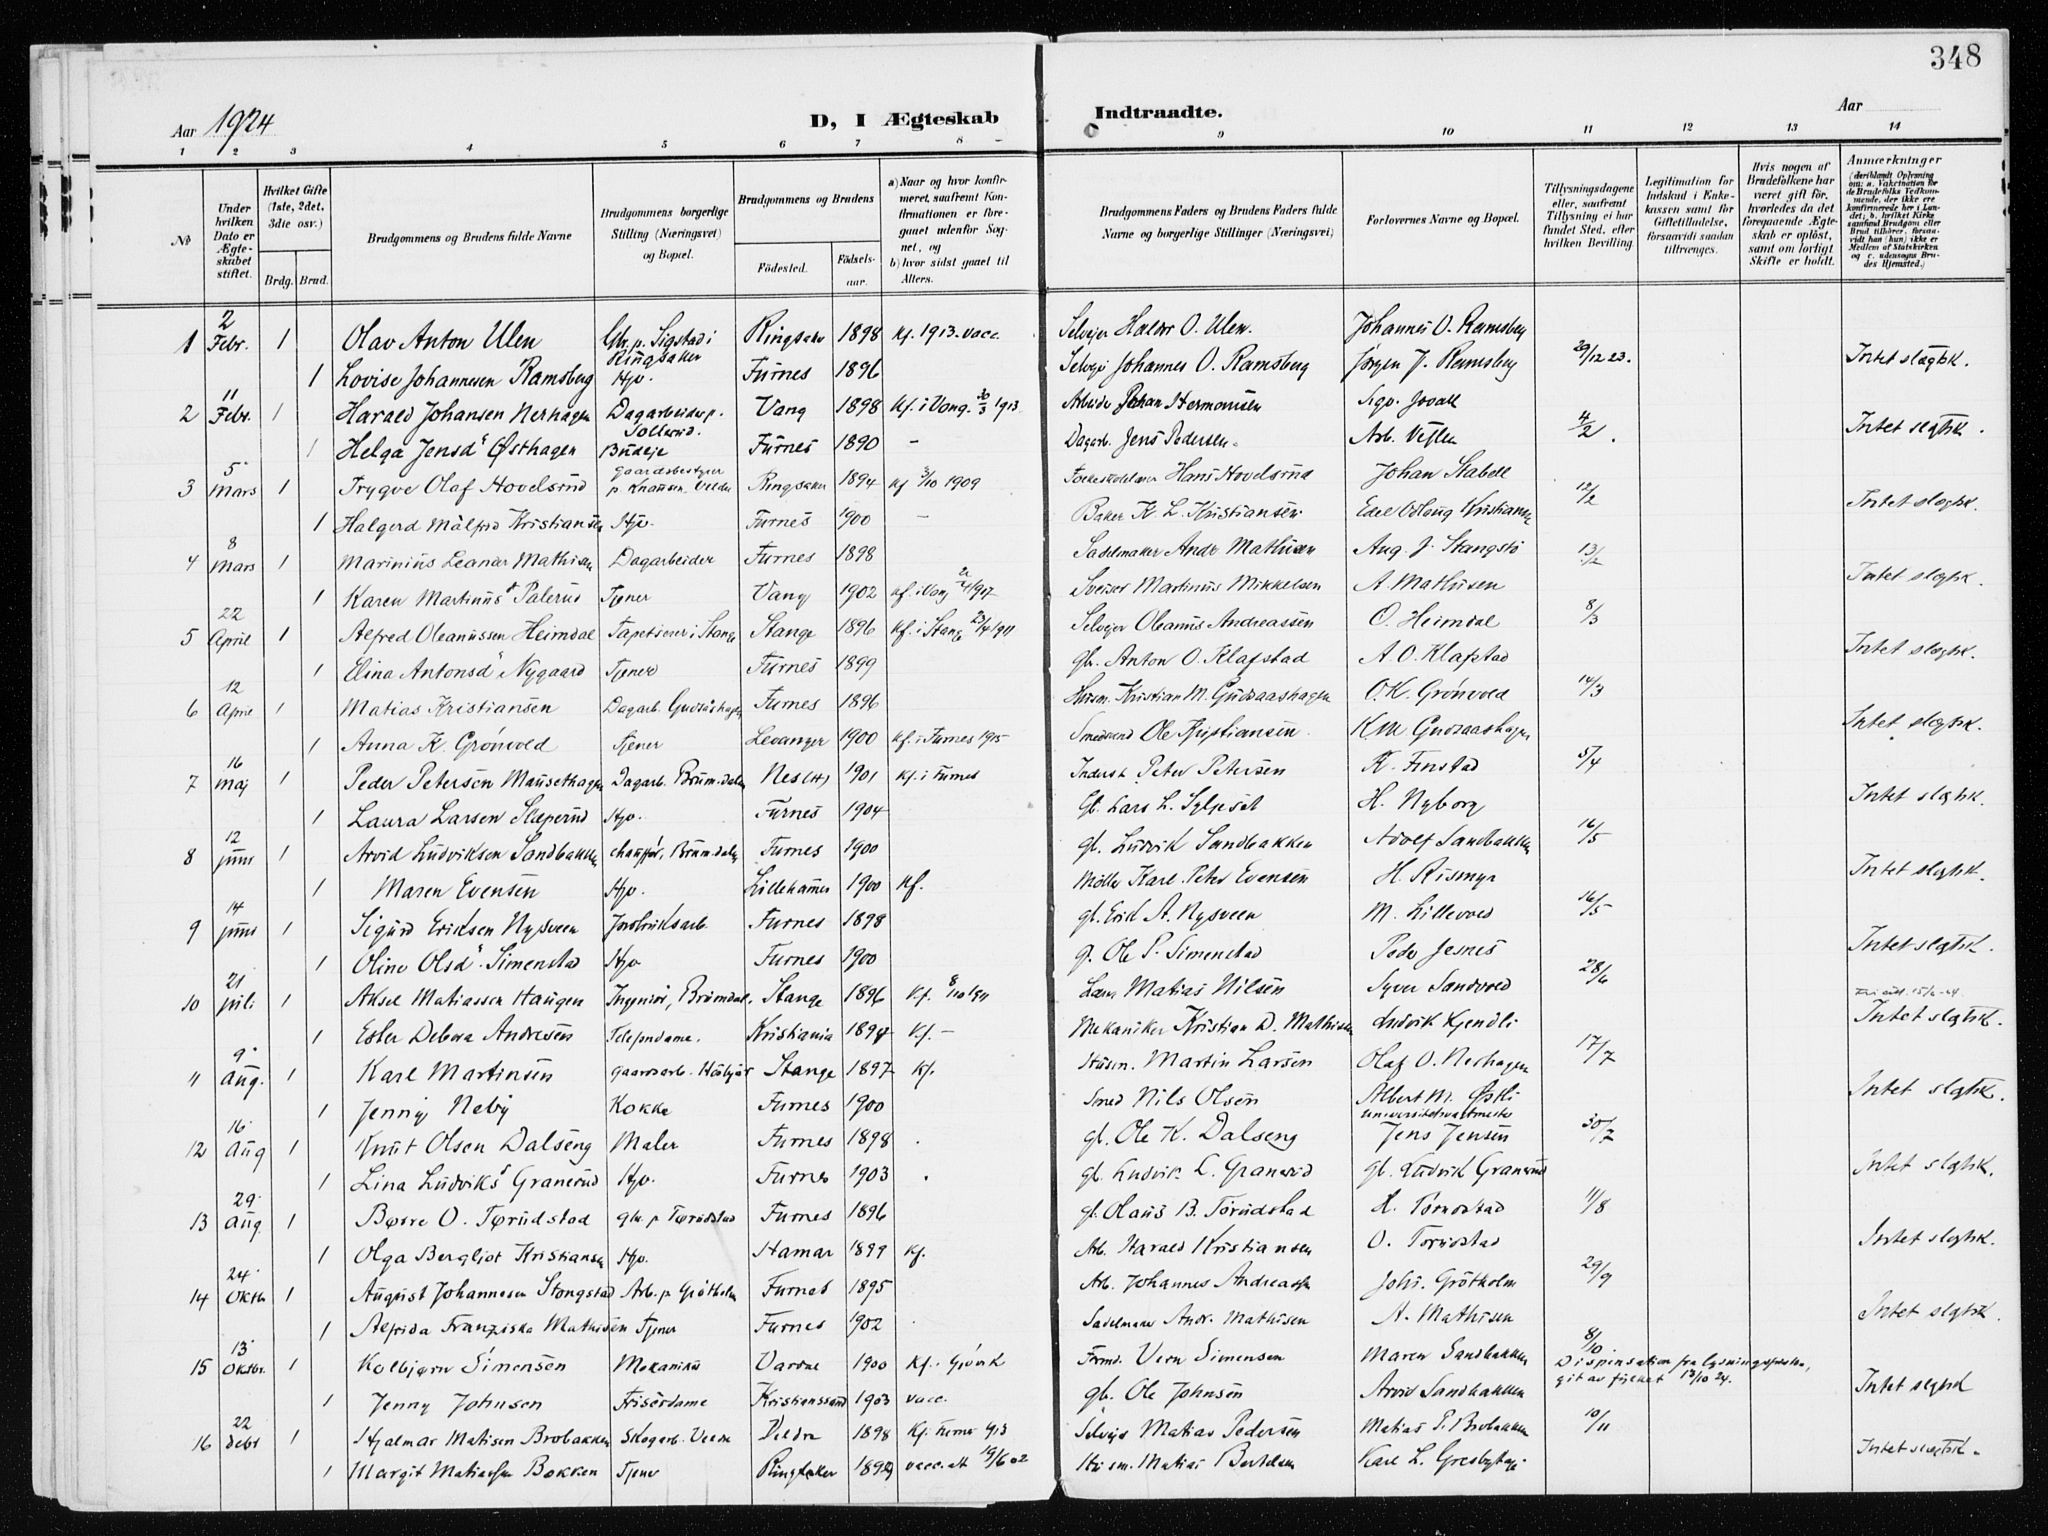 348
Aar 1924 D, I Ægteskab Indtraadte. Aar
1 2 3 4 5 6 7 8 9 10 11 12 13 14
No
Under hvilken Dato er Ægteskabet stiftet.
Hvilket Gifte (1ste, 2det, 3die osv.)
Brdg. Brud.
Brudgommens og Brudens fulde Navne
Brudgommens borgerlige Stilling (Næringsvei) og Bopæl.
Brudgommens og Brudens
Fødested. Fødselsaar.
a) Naar og hvor konfirmeret, saafremt Konfirmationen er foregaaet udenfor Sognet, og
b) hvor sidst gaaet til Alters.
Brudgommens Faders og Brudens Faders fulde Navne og borgerlige Stillinger (Næringsvei)
Forlovernes Navne og Bopæl.
Tillysningsdagene eller, saafremt Tillysning ei har fundet Sted, efter hvilken Bevilling.
Legitimation for Indskud i Enkekassen samt for Giftetilladelse, forsaavidt saadan tiltrænges.
Hvis nogen af Brudefolkene har været gift før, hvorledes da det foregaaende Ægteskab er opløst, samt om lovligt Skifte er holdt.
Anmærkninger (deriblandt Oplysning om: a. Vakcination for de Brudefolks Vedkommende, der ikke ere konfirmerede her i Landet; b. hvilket Kirkesamfund Brudgom eller Brud tilhører, forsaavidt han (hun) ikke er Medlem af Statskirken og c. udensogns Brudes Hjemsted.)
1 2 Febr. 1 Olav Anton Ulen Gbr. p. Sigstad i Ringsaker Ringsaker 1898 Kf. 1913. vacc. Selveier Haldor O. Ulen. Johannes O. Ramsberg 29/12 23.
1 Lovise Johannesen Ramsberg Hjv. Furnes 1896 Selveier Johannes O. Ramsberg Jørgen J. Ramsberg Intet slægtsk.
2 11 Febr. 1 Harald Johansen Nerhagen Dagarbeider p. Sollerud. Vang 1898 Kf. i Vang. 30/3 1913 Arbeider Johan Hermansen 4/2.
1 Helga Jensd. Østhagen Budeje Furnes 1890 - Dagarb. Jens Pedersen. Arb. Intet slegtsk.
3 5 Mars 1 Trygve Olaf Hovelsrud Gaardsbestyrer p. Knausen. Veldre Ringsaker 1894 Kf 3/10 1909 Hans Hovelsrud Johan Stabell 12/2
1 Halgerd Målfrid Kristiansen Hjv. Furnes 1900 - Baker K. L. Kristiansen Edel Odlaug Kristiansen Intet slægtsk.
4 8 Mars 1 Marinius Leanar Mathisen Dagarbeider Furnes 1898 Sadelmaker Andr. Mathisen Aug. J. Stangstø 13/2
1 Karen Martinus d. Palerud Tjener Vang 1902 Kf. i Vang 1917 Sveiser Martinus Mikkelsen A Mathisen Intet slægtsk.
5 22 April 1 Alfred Oleanussen Heimdal Tapetserer i Stange Stange 1896 Kf. i Stange 23/4 1911 Selveier Oleanus Andreassen O. Heimdal 8/3
1 Elina Antonsd. Nygaard Tjener Furnes 1899 gbr. Anton O. Klafstad A. O. Klafstad Intet slægtsk.
6 12 April 1 Matias Kristiansen Dagarb. Gudsaashagen Furnes 1896 Husm. Kristian M. Gudsaashagen O. K. Grønvold 14/3
1 Anna K. Grønvold Tjener Levanger 1900 Kf. i Furnes 1915 Ole Kristiansen. K M Gudsaashagen Intet slægtsk.
7 16 Maj 1 Peder Petersen Mausethagen Dagarb. Brumdalen Nes(H) 1901 Kf. i Furnes Inderst Peter Petersen K. Finstad 5/4
1 Laura Larsen Slæperud Hjv. Furnes 1904 Gb. Lars L. H. Nyborg Intet slægtsk.
8 12 Juni 1 Arvid Ludviksen Sandbakken chauffør, Brumdalen Furnes 1900 gb. Ludvik Sandbakken Adolf Sandbakken 16/5
1 Maren Evensen Hjv. Lillehamer 1900 Kf. Møller Karl Peter Evensen H. Rismyr Intet slegtsk.
9 14 Juni 1 Sigurd Eriksen Nysveen Jordbruksarb. Furnes 1898 gb. Erik A. Nysveen M. Lillevold 16/5
1 Oline Olsd. Simenstad Hjv Furnes 1900 g. Ole P. Simenstad Peder Jesnes Intet slegtsk.
10 21 Juli 1 Aksel Matiassen Haugen Ingeniør, Brumdal. Stange 1896 Kf. 8/10 1911 Matias Nilsen Syver Sandvold 28/6
1 Ester Debora Andresen Telefondame. Kristiania 1894 Kf. - Mekaniker Kristian D. Mathisen Ludvik Kjendli Intet slegtsk.
11 9 Aug. 1 Karl Martinsen gaardsarb. Stange 1897 Kf. Husm. Martin Larsen Olaf O. Nerhagen 17/7
1 Jenny Neby Kokke Furnes 1900 Smed Nils Olsen Albert M. Østli Intet slegtsk.
12 16 Aug 1 Knut Olsen Dalseng Maler Furnes 1898 gb. Ole K. Dalseng universitetsvaktmester Jens Jensen 30/7
1 Lina Ludviks d. Granerud Hjv. Furnes 1903 gb. Ludvik L. Granerud gb. Ludvik Granerud Intet slegtsk.
13 29 Aug. 1 Børre O. Tørudstad gbr. p Tørudstad Furnes 1896 gb. Olaus B. Tørudstad H. Tørudstad 11/8
1 Olga Bergljot Kristiansen Hjv. Hamar 1899 Kf. Arb. Harald Kristiansen O. Tørudstad Intet slegtsk.
14 24 Oktb. 1 August Johannesen Stangstad Arb. p. Grøtholm Furnes 1895 Arb. Johannes Andreassen Johs. Grøtholm 29/9
1 Alfrida Franziska Mathisen Tjener Furnes 1902 Sadelmaker Andr. Mathisen A. Mathisen Intet slegtsk.
15 13 Oktbr. 1 Kolbjørn Simensen Mekaniker Vardal 1900 Kf. i Gjøvik Formd. Simensen Maren Sandbakken 8/10. Dispensation fra lysningsfristen, git av fylket 13/10 24.
1 Jenny Johnsen Frisérdame Kristianssund 1903 vacc. gb. Ole Johnsen Arvid Sandbakken Intet slegtsk
16 22 Debr 1 Hjalmar Matisen Brobakken Skogarb. Veldre Veldre 1898 Kf. Furnes 1913 Selveier Matias Pedersen Matias P. Brobakken 10/11
1 Margit Matiassen Bakken Tjener Ringsaker 1899 vacc. att 19/6 02 Husm. Matias Karl L. Intet slægtsk.